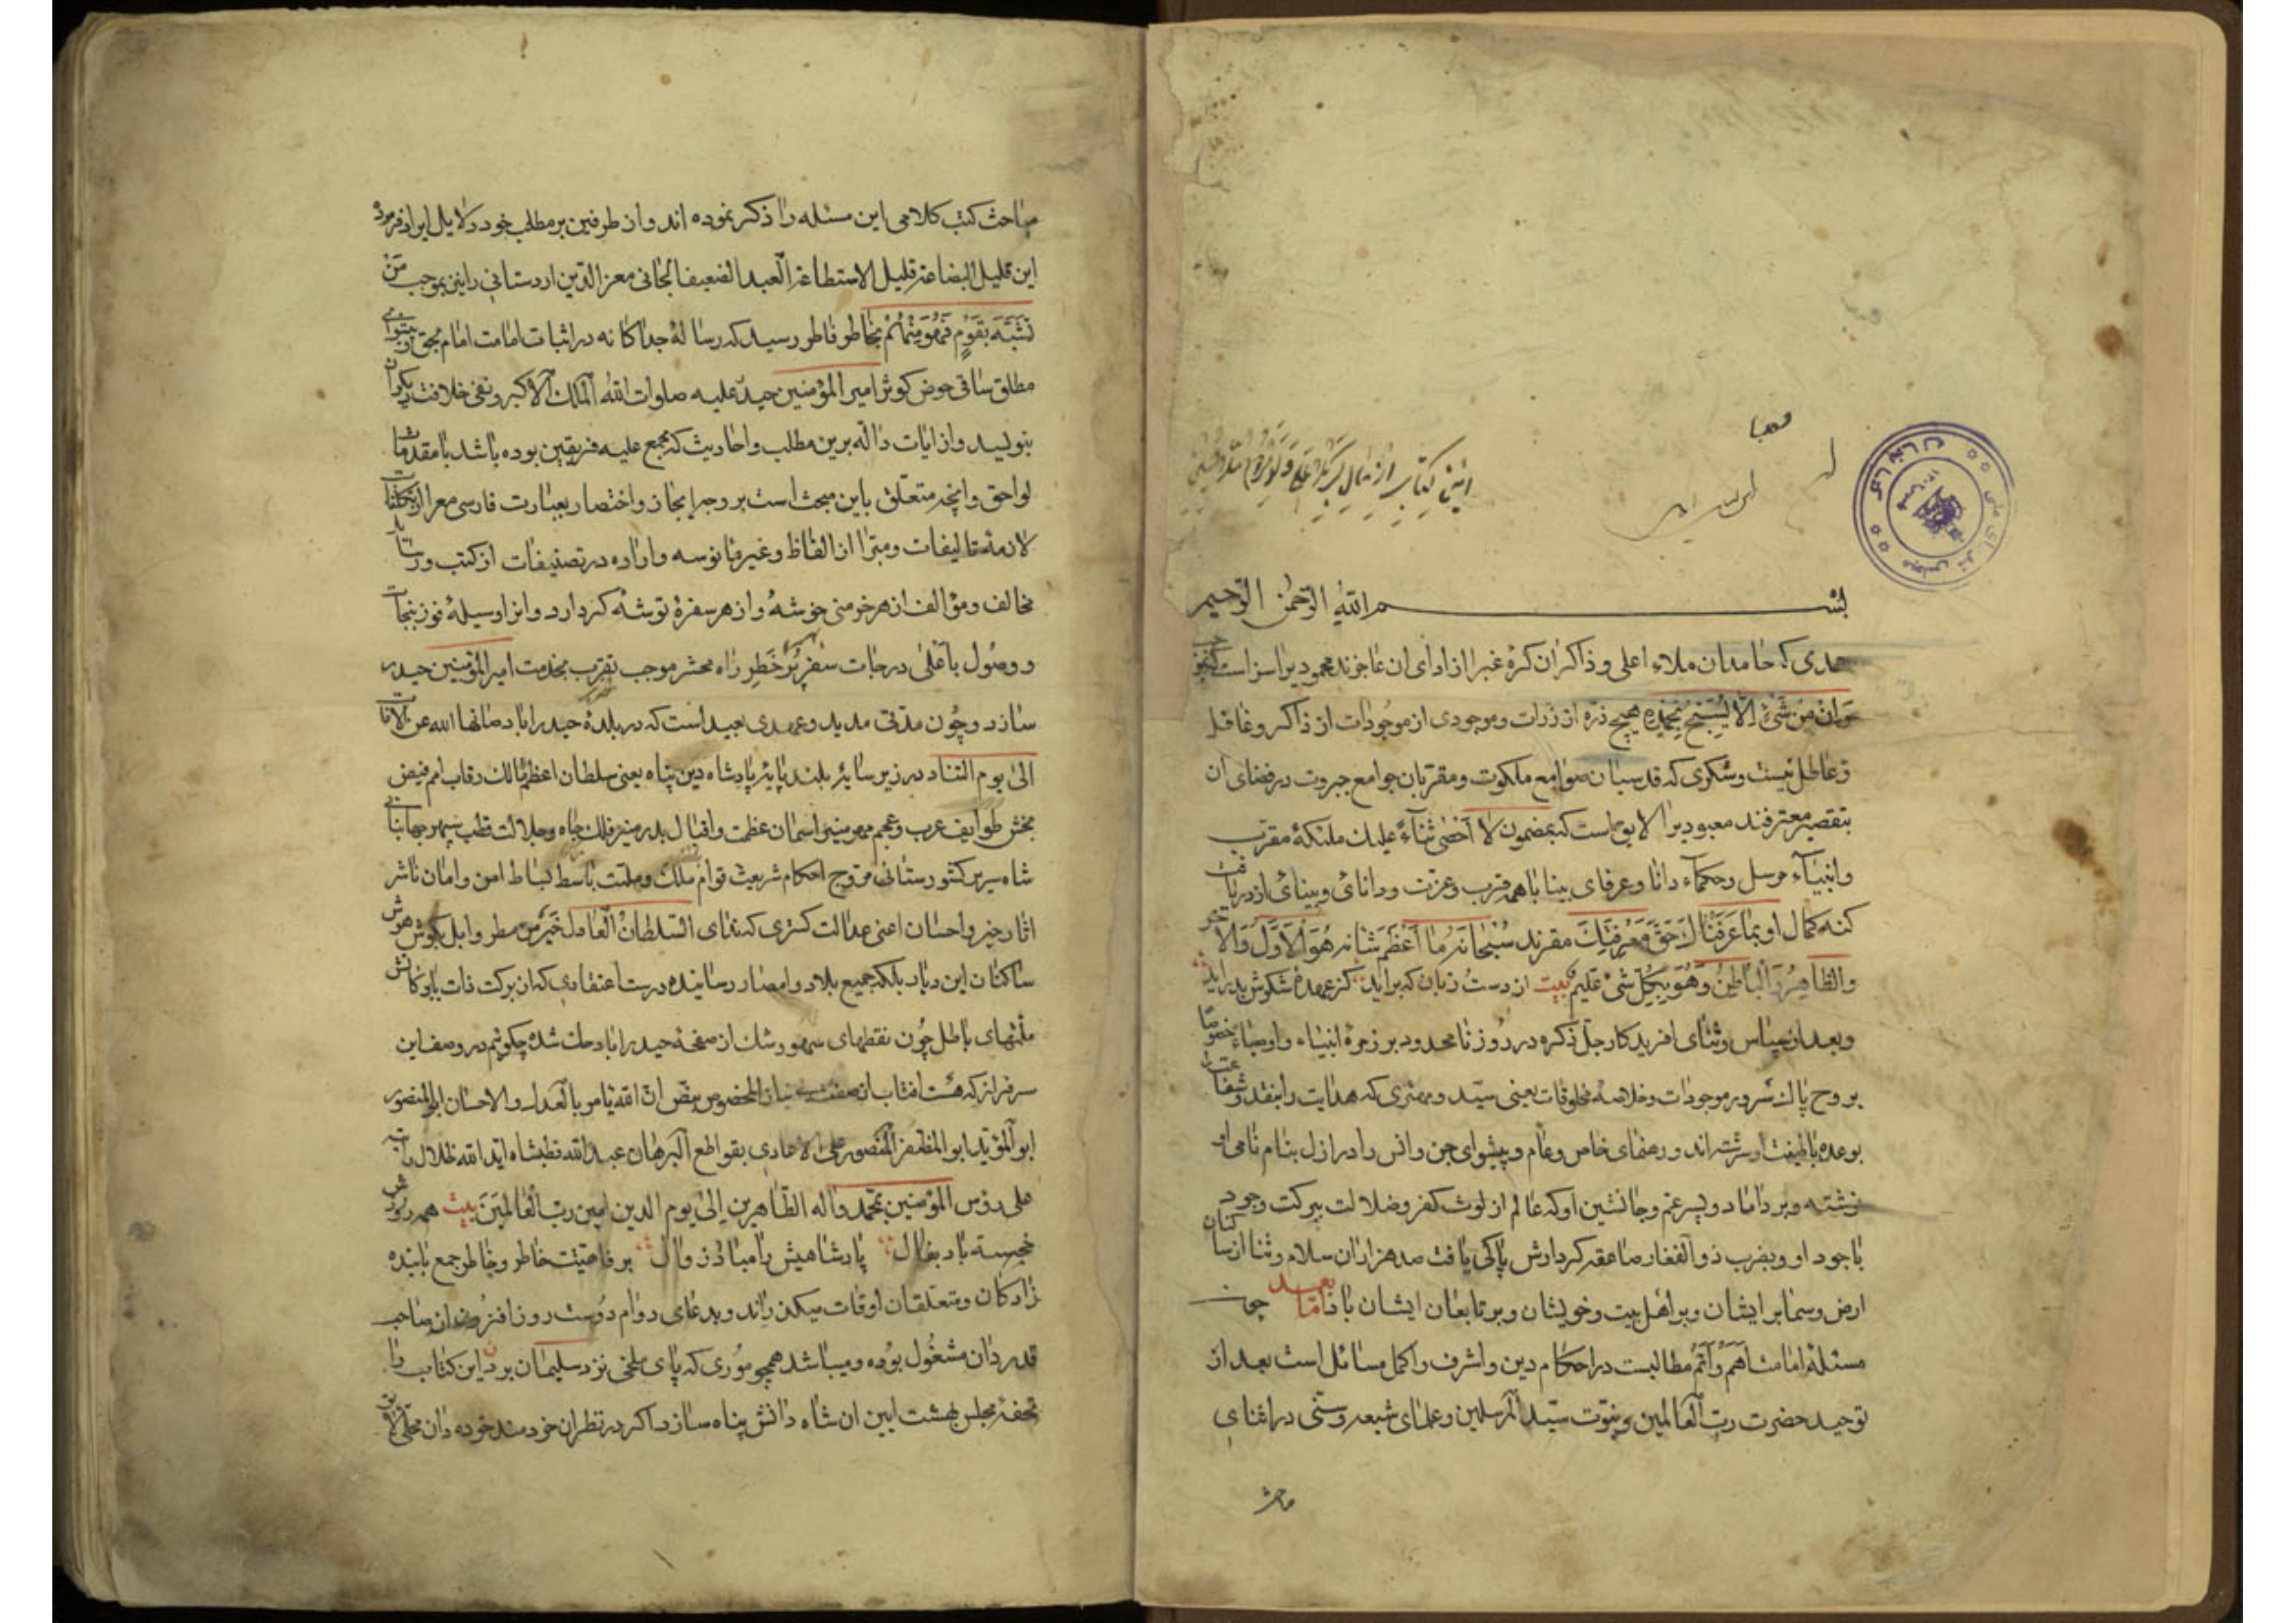 بسم الله الرحمن الرحیم
حمدی که حامدان ملاء اعلی و ذاکران کرهٔ غبرا از ادای ان عاجزند محمودیرا سزاست که بمضمون
وَاِن مِن شَیءٍ اِلّا یُسَبِّحُ بِحَمدِهِ هیچ ذره از ذرات و موجودی از موجودات از ذاکر و غافل
و عاطل نیست و شکری که قدسیان صوامع ملکوت و مقربان جوامع جبروت در فضای ان
بتقصیر معترفند معبودیرا لایق است که بمضمون لا اُحصی ثناءً علیک ملئکهٔ مقرب
و انبیآء مرسل و حکمآء دانا و عرفای بینا با همه قرب و عزت و دانائ و بینائ از دریافت
کنه کمال او بما عَرَفناکَ حَقَّ مَعرِفَتِکَ مقرند سُبحانه مٰا اَعظَمَ شانه هُوَ الاَوَّلُ وَالاٰخر
والظّاهِرُ وَالباطِنُ وَهُوَ بِکُلِّ شَیءٍ عَلیم بیت از دست زبان که براید کز عهدهٔ شکرش بدراید
و بعد از سپاس و ثنای افریدکار جلّ ذکره درود نامحدود بر زمرهٔ انبیاء و اوصیاء خصوصا
بر روح پاک سرور موجودات و خلاصهٔ مخلوقات یعنی سیّد و مهتری که هدایت را بنقد و شفاعت را
بوعده با طینت او سرشته اند و رهنمای خاص و عام و پیشوای جن و انس را در ازل بنام نامی او
نوشته و بر داماد و پسر عم و جانشین او که عالم از لوث کفر و ضلالت ببرکت وجود
باجود او و بضرب ذوالفقار صاعقه کردارش پاکی یافت صد هزاران سلام و ثنا از ساکنان
ارض و سما بر ایشان و بر اهل بیت و خویشان و بر تابعان ایشان باد امّا بعد چون
مسئلهٔ امامت اَهَمّ وَ اَتَمّ مطالبست در احکام دین و اشرف و اکمل مسائل است بعد از
توحید حضرت ربّ العالمین و نبوّت سیّد المرسلین و علمای شیعه و سنّی در اثنای
مباحث
مباحث کتب کلامی این مسئله را ذکر نموده اند و از طرفین بر مطلب خود دلایل ایراد فرموده
این قلیل البضاعة قلیل الاستطاعة العبد الضعیف الجانی معز الدین اردستانی را نیز بموجب مَن
تَشَبَّهَ بقَومٍ فَهُوَ مِنهُم بخاطر فاطر رسید که رسالهٔ جداکانه در اثبات امامت امام بحق و پیشوای
مطلق ساقی حوض کوثر امیر المؤمنین حیدر علیه صلوات الله الملک الاکبر و نفی خلافت دیکران
بنویسد و از ایات داله برین مطلب و احادیث که مجمع علیه فریقین بوده باشد با مقدمات
لواحق و انچه متعلق باین مبحث است بر وجه ایجاز و اختصار بعبارت فارسی معرا از تکلفات
لازمهٔ تالیفات و مبرّا از الفاظ و غیر مانوسه واراده در تصنیفات از کتب و رسائل
مخالف و مؤالف از هر خرمنی خوشهٔ و از هر سفرهٔ توشهٔ کرد ارد و انرا وسیلهٔ فوز بنجات
و وصول باَعلی درجات سَفَرِ پُر خَطَرِ راه محشر موجب تقرب بخدمت امیر المؤمنین حیدر
سازد و چون مدّتی مدید و عهدی بعید است که در بلدهٔ حیدراباد صانها الله عن الافات
الی یوم التناد در زیر سایهٔ بلند پایهٔ پادشاه دین پناه یعنی سلطان اعظم مالک رقاب امم فیض
بخش طوایف عرب و عجم مهر منیر اسمان عظمت و اقبال بدر منیر فلک جاه و جلالت قطب سپهر جهانبانی
شاه سریر کشورستانی مروج احکام شریعت قوام مُلک و ملّت باسط بساط امن و امان ناشر
اثار خیر و احسان اعنی عدالت کستری که ندای السّلطانُ العادل خَیرٌ مِن مطر وابل بکوش هوش
ساکنان این دیار بلکه جمیع بلاد و امصار رسانیده درست اعتقادی که از برکت ذات بابرکاتش
ملتهای باطل چُون نقطهای سهو و شک از صفحهٔ حیدراباد حک شده چکویم در وصف این
سرفراز که هست افتاب از المخصوص بنصّ انّ الله یامر بالعدل و الاحسان ابوالمنصور
ابو المؤید ابو المظفر المنصور علی الاعادی بقواطع البرهان عبدالله قطبشاه اید الله ظلال رافته
علی رؤس المؤمنین بمحمّد واله الطّاهرین اِلیٰ یوم الدین امین ربّ العالَمین بیت همه روزش
خجسته باد بفال پادشاهیش را مباد زوال برفاهیّت خاطر و خاطر جمع با بنده
زادکان و متعلقان اوقات میکذراند و بدعای دوام دولت روز افزون ان صاحب
قدردان مشغول بوده و میباشد همچو مُوری که پای ملخی نزد سلیمان برد این کتاب را
تحفهٔ مجلس بهشت ایین ان شاه دانش پناه سازد اکر در نظر ان خردمند خورده دان